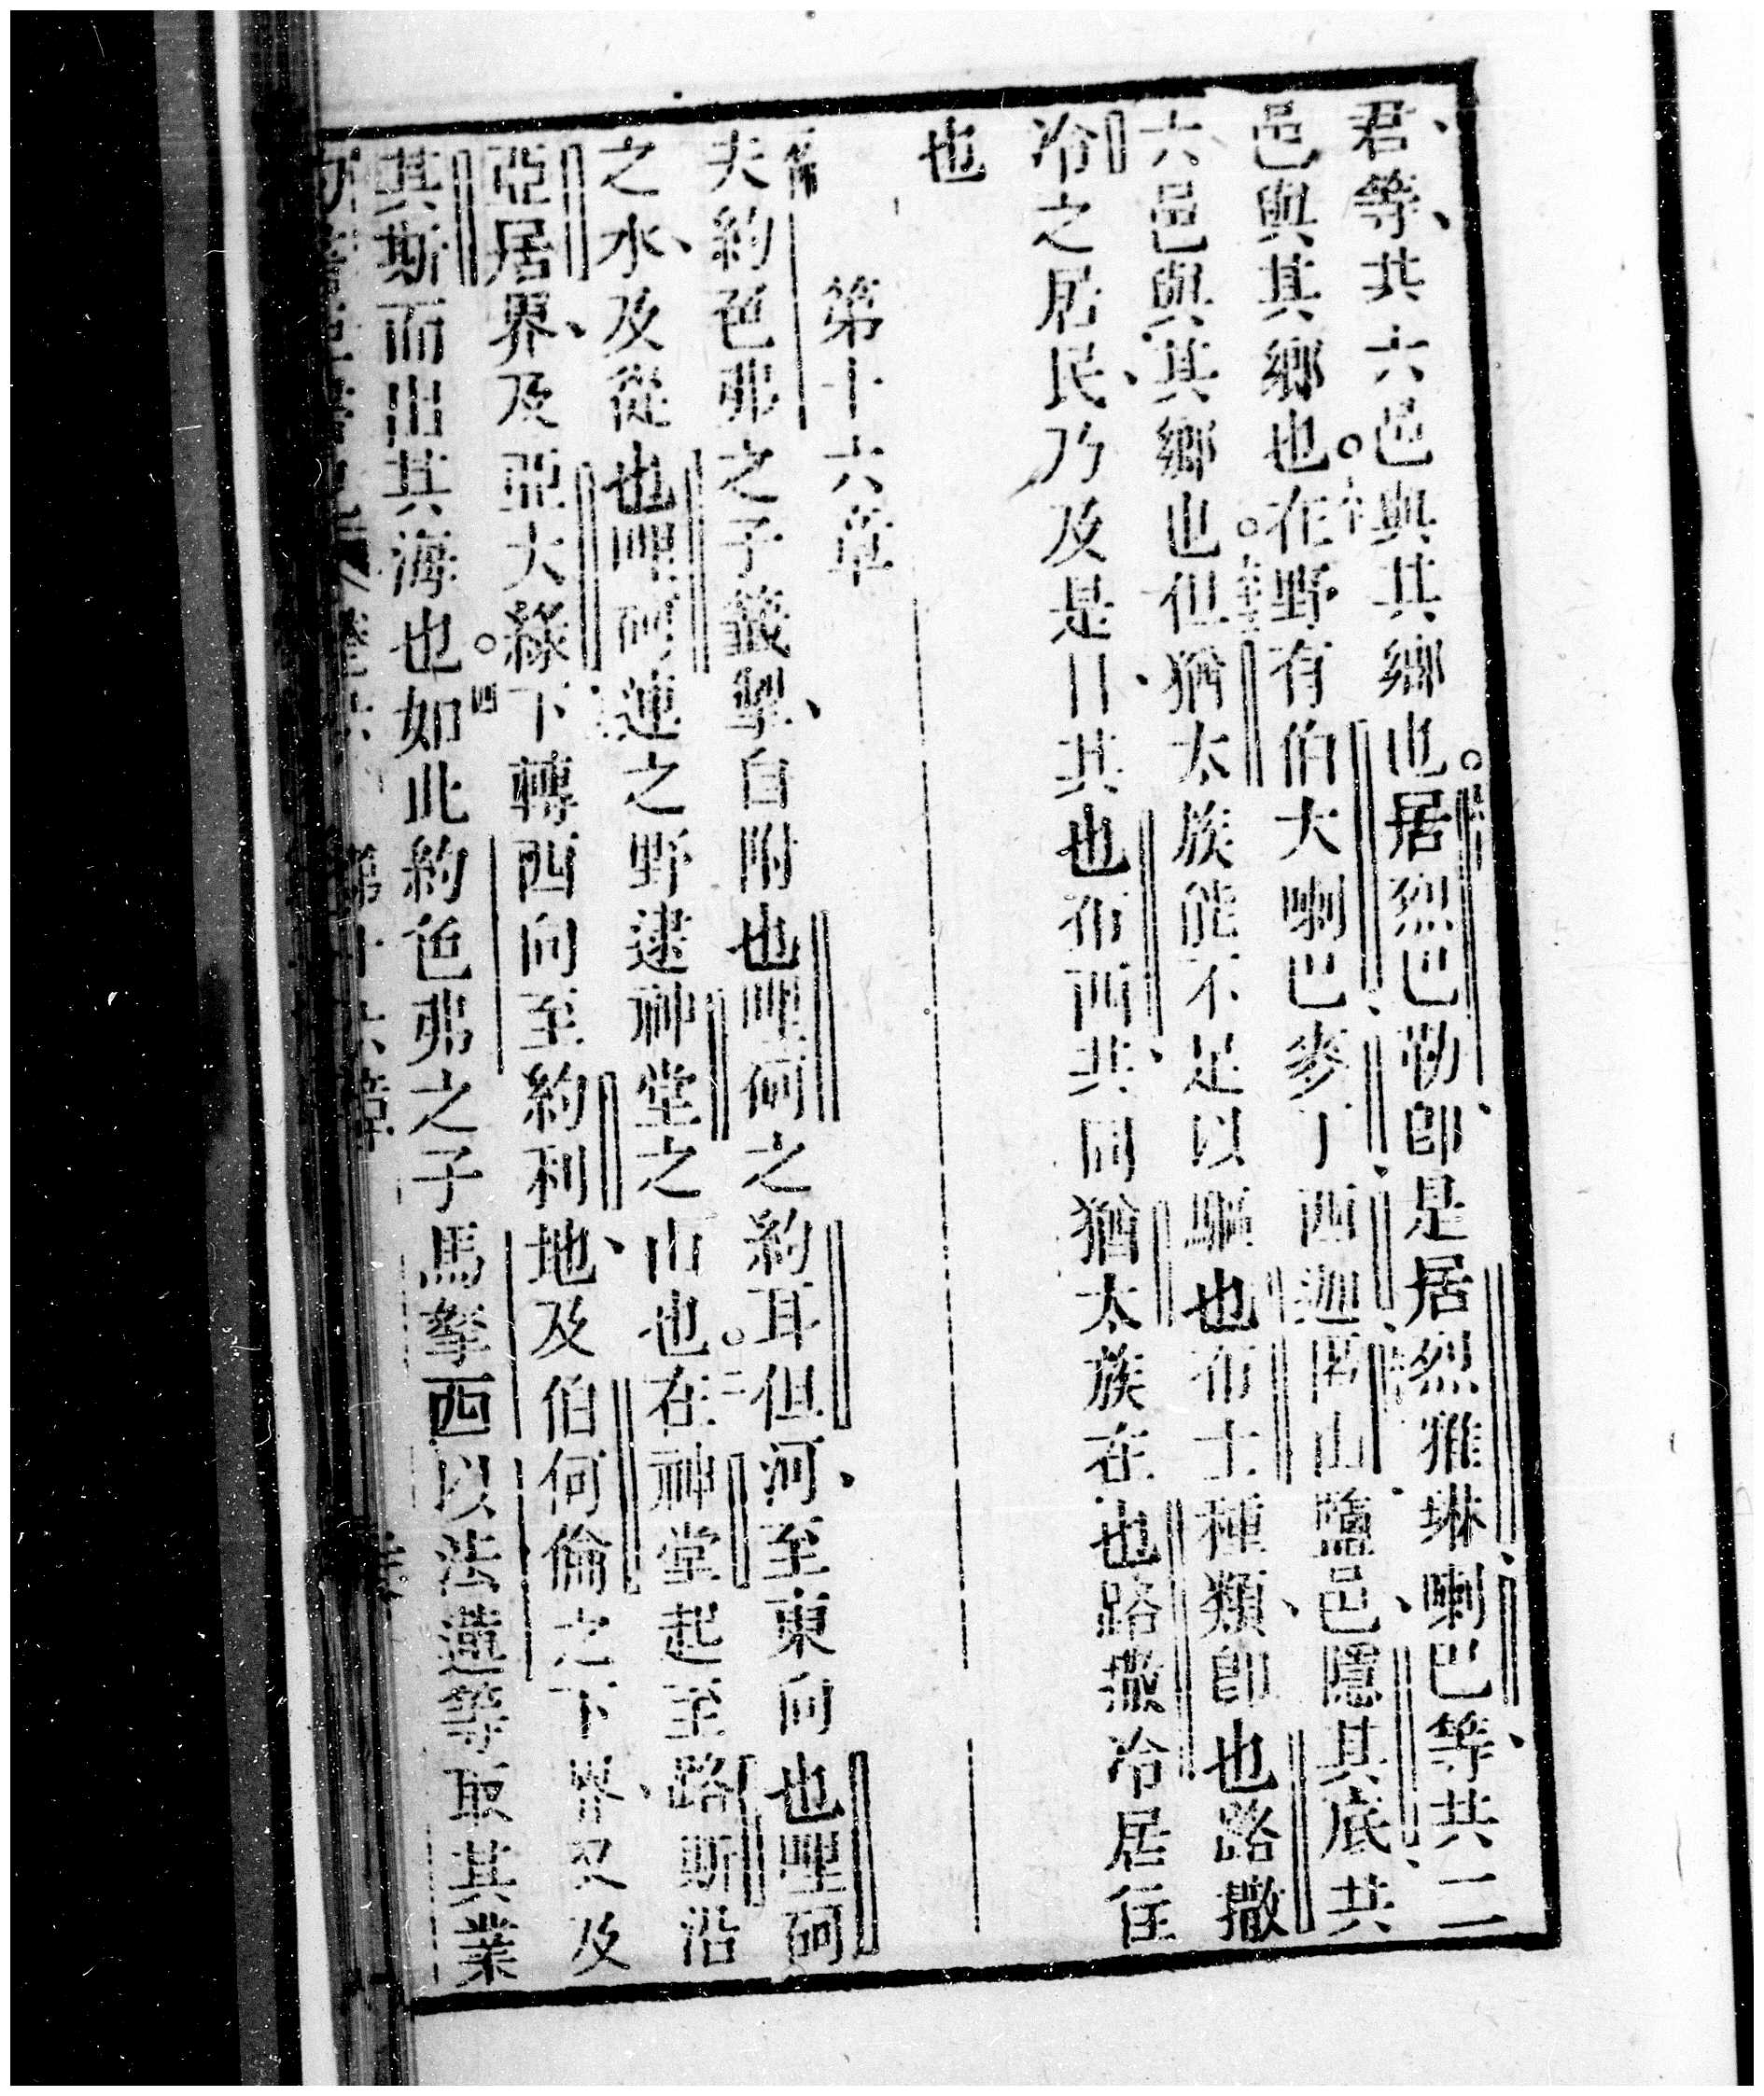 君等共六邑與其鄉也居烈巴勒卽是居烈雅琳喇巴等共二
邑與其鄉也在野有伯大喇巴麥丁西迦苦山鹽邑隱其底共
六邑與其鄉也但猶太族能不足以驅也布士種類卽也路撒
冷之居民乃及是日其也布西共同猶太族在也路撒冷居住
也
第十六章
夫約色弗之子籤擧自附也哩硐之約耳但河至東向也哩硐
之水及從也哩硐連之野達神堂之山也在神堂起至路斯沿
亞居界及亞大綠下轉西向至約利地及伯何倫之下界又及
其斯而出其海也如此約色弗之子馬拏西以法蓮等取其業